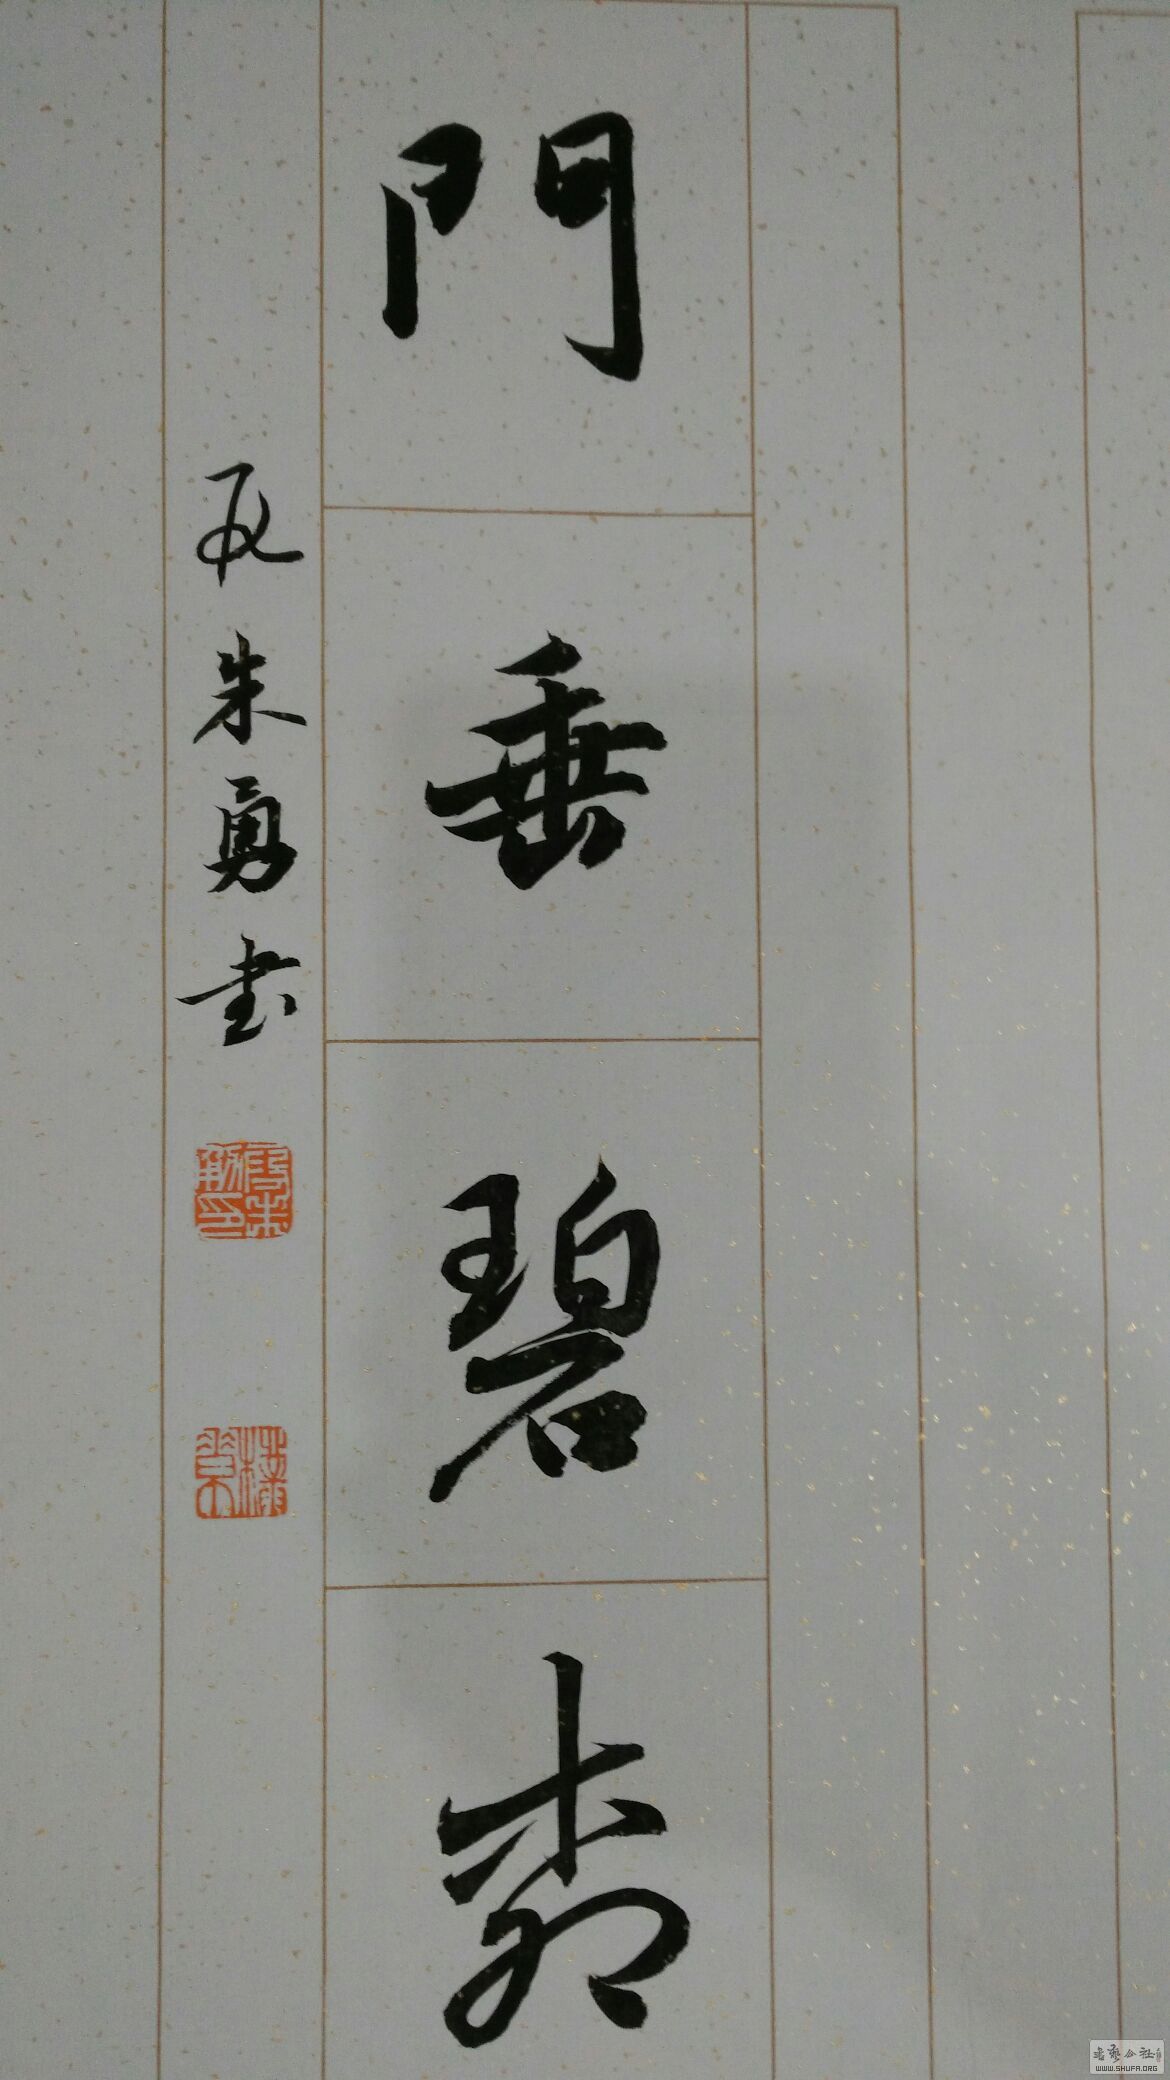 門垂碧柳
段朱勇書
书艺公社
WWW.SHUFA.ORG